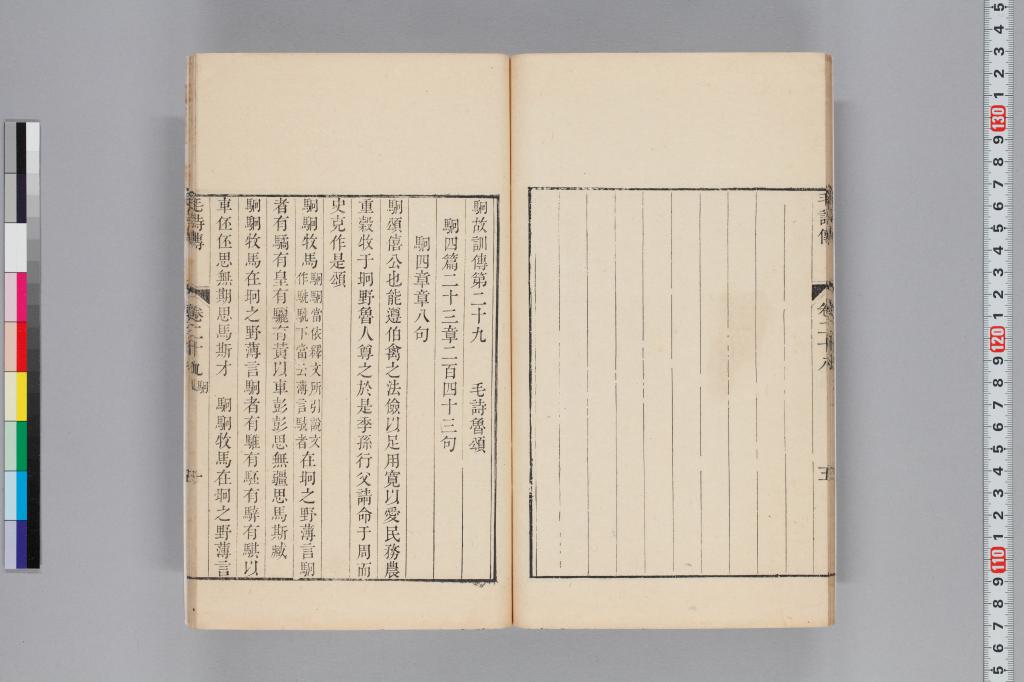 毛詩傳 卷二十八 五
駉故訓傳第二十九 毛詩魯頌
駉四篇二十三章二百四十三句
駉四章章八句
駉頌僖公也能遵伯禽之法儉以足用寬以愛民務農
重穀牧于坰野魯人尊之於是季孫行父請命于周而
史克作是頌
駉駉牧馬
駉駉當依釋文所引說文
作駫駫下當云薄言駫者
在坰之野薄言駉
者有驈有皇有驪有黃以車彭彭思無疆思馬斯臧
駉駉牧馬在坰之野薄言駉者有騅有駓有騂有騏以
車伾伾思無期思馬斯才 駉駉牧馬在坰之野薄言
毛詩傳 卷二十九 駉 一
5 4 3 2 1 130 9 8 7 6 5 4 3 2 1 120 9 8 7 6 5 4 3 2 1 110 9 8 7 6 5